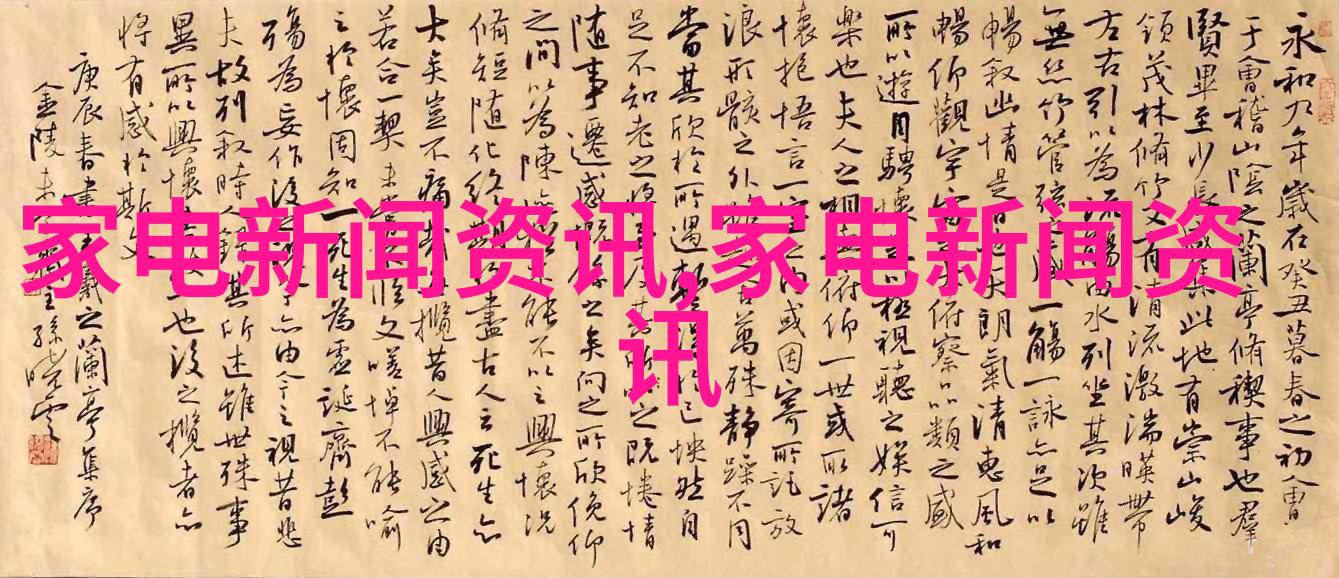 家电新闻资讯,家电新闻资
讯
永和九年歲在癸丑暮春之初會
于會稽山陰之蘭亭脩禊事也群
賢畢至少長咸集此地有崇山峻
領茂林脩竹又有清流激湍暎帶
左右引以為流觴曲水列坐其次雖
無絲竹管弦之盛一觴一詠亦足以
暢敘幽情是日也天朗氣清惠風和
暢仰觀宇宙之大俯察品類之盛
所以遊目騁懷足以極視聽之娛信可
樂也夫人之相與俯仰一世或取諸
懷抱悟言一室之內或因寄所託放
浪形骸之外雖萬殊靜躁不同
當其欣於所遇暫得於己怏然自
足不知老之將至及其所之既惓情
隨事遷感慨係之矣向之所欣俛仰
之間以為陳迹不能不以之興懷況
脩短隨化終期於盡古人云死生亦
大矣豈不痛哉攬昔人興感之由
若合一契未嘗不臨文嗟悼不能喻
之於懷固知一死生為虛誕齊彭
殤為妄作後之亦由今之視昔悲
夫故列敘時人錄其所述雖世殊事
異所以興懷其致一也後之攬者亦
將有感於斯文
庚辰春書王羲之蘭亭集序
金陵孫曉雲